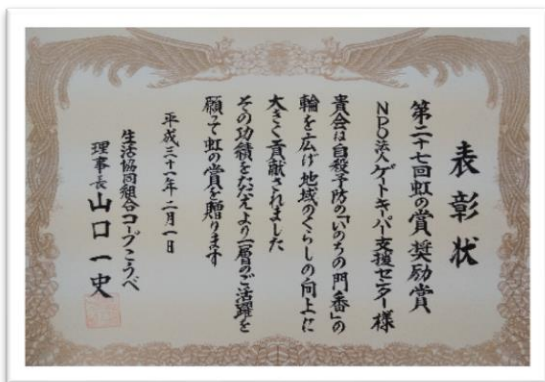 表彰状
第二十七回虹の賞 奨励賞
NPO法人ゲートキーパー支援センター様
貴会は自殺予防の「いのちの門番」の
輪を広げ地域のくらしの向上に
大きく貢献されました
その功績をたたえより一層のご活躍を
願って虹の賞を贈ります
平成三十一年二月一日
生活協同組合コープこうべ
理事長 山口一史